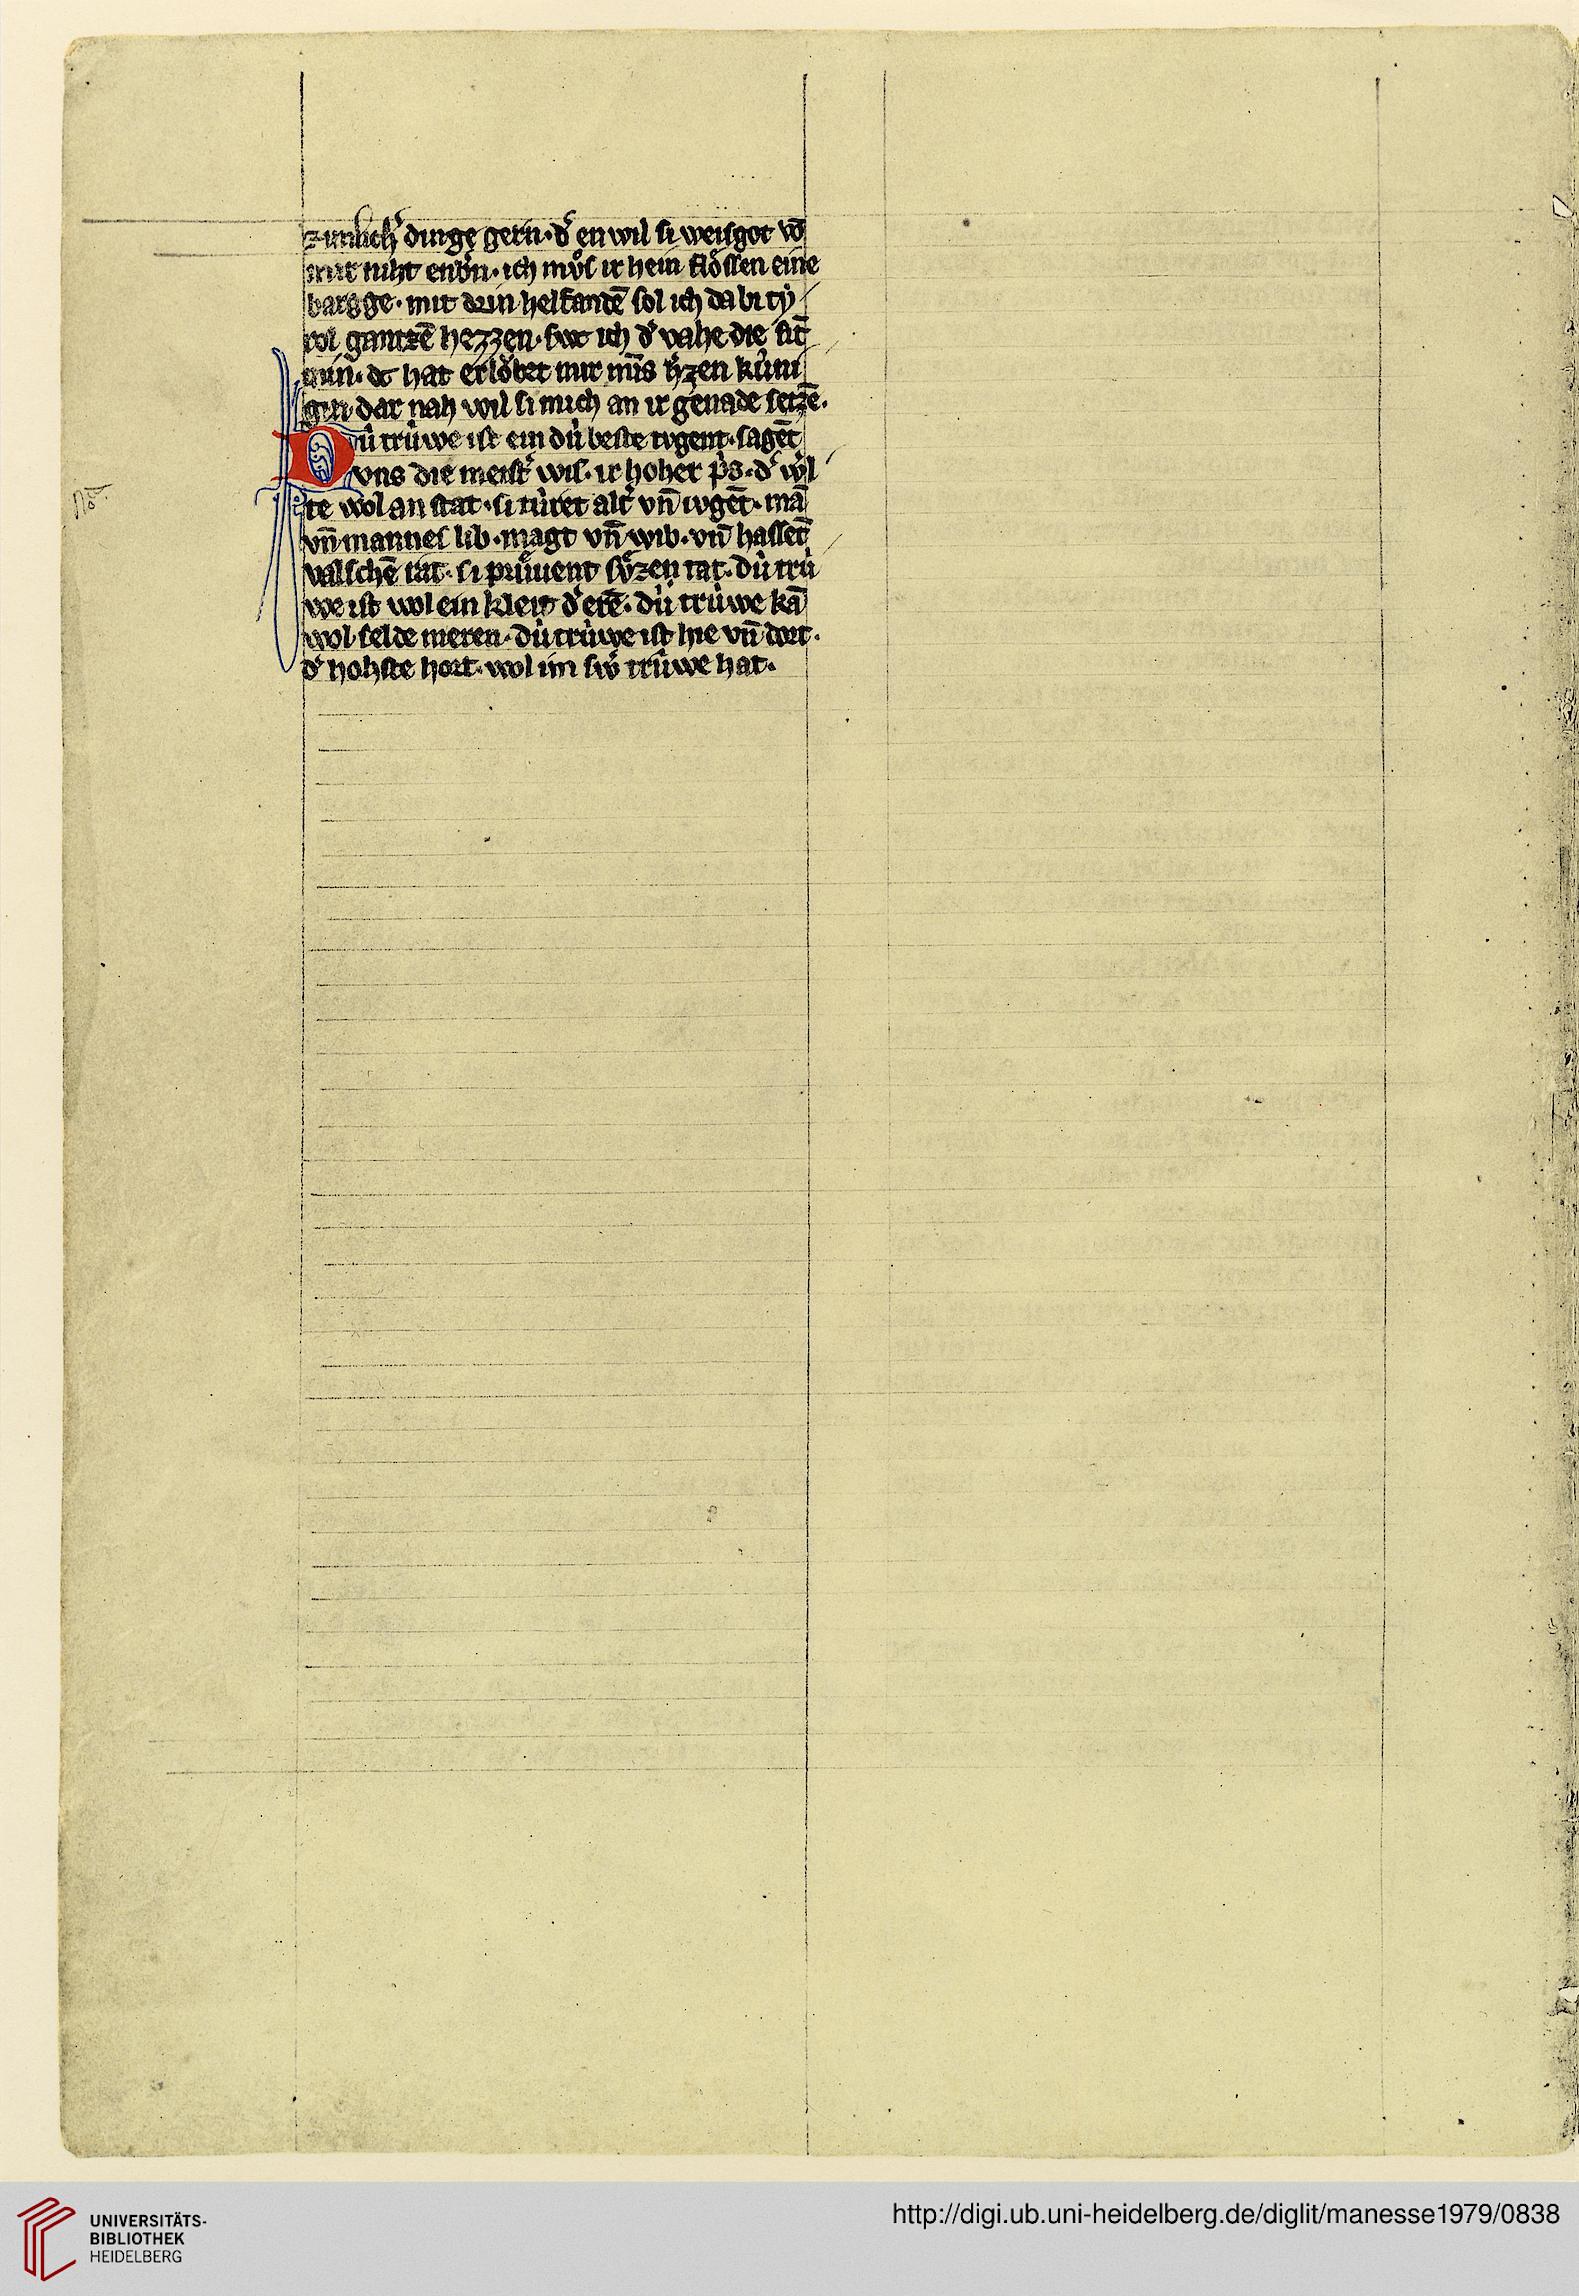 zimlichˢ dinge gern· dˢ en wil si weisgot vō
mir niht enbˢn· ich mvͦs ir hein flössen eine
bargge· mit drin helfandē sol ich da bi ty
rol gantzē hezzen· swc ich dˢ vahe die sīt
min· dc hat erlöbet mir mīs hˢzen kúni
gin· dar nah wil si mich an ir genade setzē·
Dú trúwe ist ein dú beste tvgent· sagēt
vns die meistˢ wis· ir hoher pˢs· dˢ wˢl
te wol an stat· si túret altˢ vn̄ ivgēt· mā
vn̄ mannes lib· magt vn̄ wib· vn̄ hassēt
valschē rat· si prúvent svͤzen rat· dú trú
we ist wol ein kleit dˢ erē· dú trúwe kā
wol selde meren· dú trúwe ist hie vn̄ dort·
dˢ hohste hort· wol im swˢ trúwe hat·
UNIVERSITÄTS-
BIBLIOTHEK
HEIDELBERG
http://digi.ub.uni-heidelberg.de/diglit/manesse1979/0838